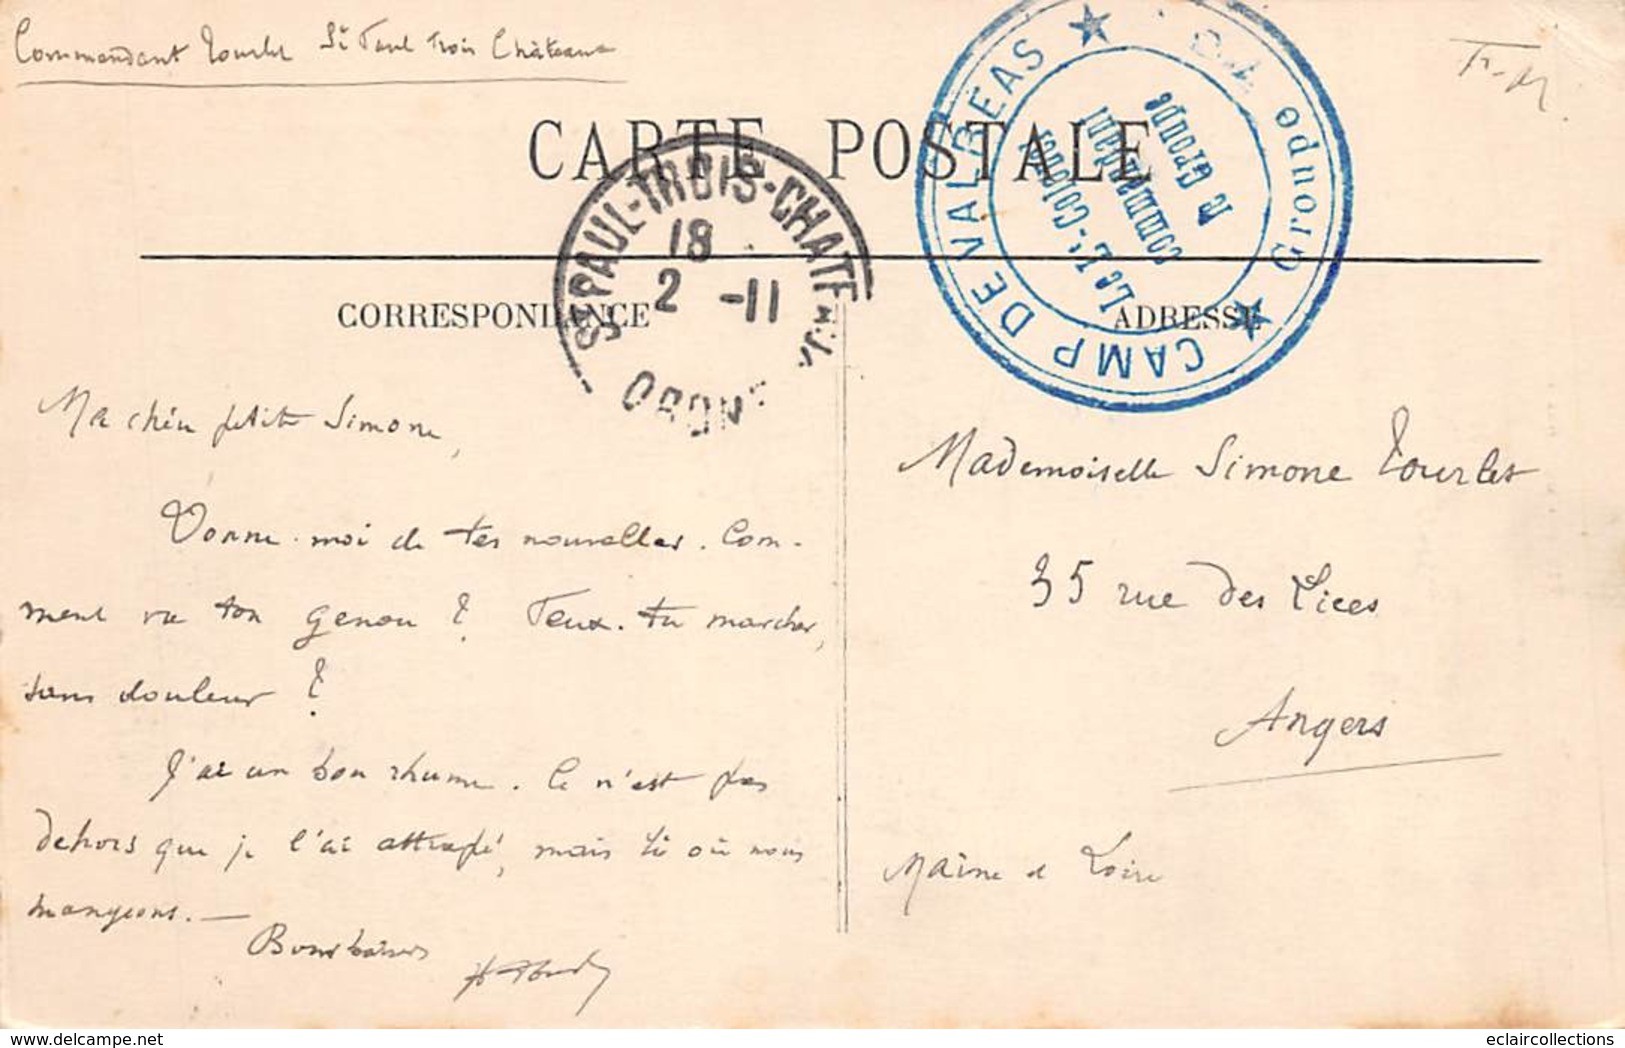 Commandant Tourlet St Paul Trois Châteaux
Fr-M
CARTE POSTALE
ST PAUL-TROIS-CHATEAUX
18
2 -11
DROME
CAMP DE VALREAS
Groupe
Le Lt-Colonel
commandant
le Groupe
CORRESPONDANCE
ADRESSE
Ma chère petite Simone,
Donne-moi de tes nouvelles. Com-
ment va ton genou ? Peux-tu marcher,
sans douleur ?
J'ai un bon rhume. Ce n'est pas
dehors que je l'ai attrapé, mais là où nous
mangeons. —
Bons baisers
Mademoiselle Simone Tourlet
35 rue des Lices
Angers
Maine et Loire
eclaircollections
https://www.delcampe.net